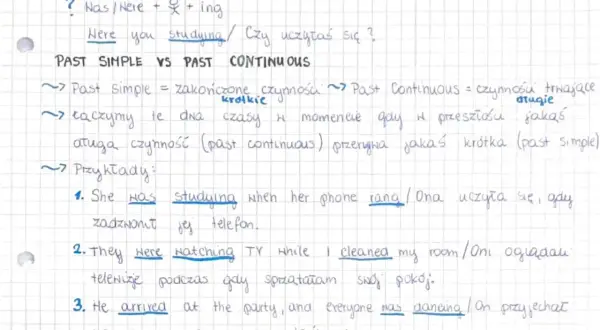 ? Was/Were + 웃 + ing
Were you studying / Czy uczyłaś się?
PAST SIMPLE VS PAST CONTINUOUS
~> Past Simple = zakończone czynności ~> Past Continuous = czynności trwające
krótkie długie
~> Łączymy te dwa czasy w momencie gdy w przeszłości jakaś
długa czynność (past continuous) przerywa jakaś krótka (past simple)
~> Przykłady:
1. She was studying when her phone rang / Ona uczyła się, gdy
zadzwonił jej telefon.
2. They were watching TV while I cleaned my room / Oni oglądali
telewizję podczas gdy sprzątałam swój pokój.
3. He arrived at the party, and everyone was dancing / On przyjechał